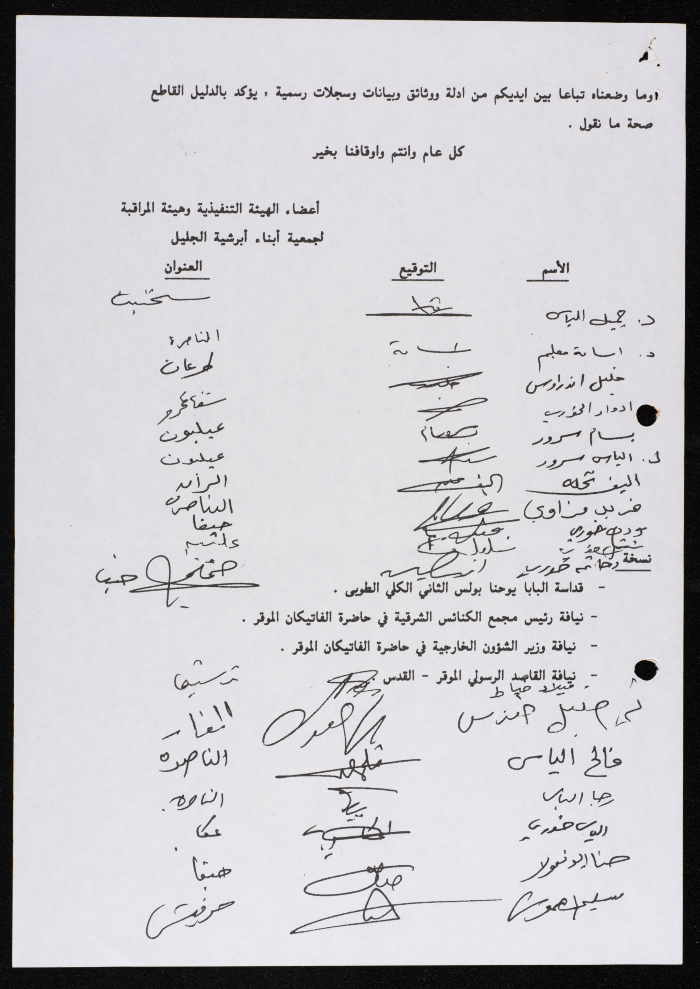 وما وضعناه تباعا بين ايديكم من ادلة ووثائق وبيانات وسجلات رسمية ، يؤكد بالدليل القاطع
صحة ما نقول .
كل عام وانتم واوقافنا بخير
أعضاء الهيئة التنفيذية وهيئة المراقبة
لجمعية أبناء أبرشية الجليل
الأسم التوقيع العنوان
د. جميل الياس
د. اسامة معلم اسامة الناصرة
خليل اندراوس طرعان
ادوار الخوري شفاعمرو
بسام سرور بسام عيلبون
د. الياس سرور عيلبون
اليف نخله الرامه
الناصرة
خوري حيفا
نسخة
- قداسة البابا يوحنا بولس الثاني الكلي الطوبى .
- نيافة رئيس مجمع الكنائس الشرقية في حاضرة الفاتيكان الموقر .
- نيافة وزير الشؤون الخارجية في حاضرة الفاتيكان الموقر .
- نيافة القاصد الرسولي الموقر - القدس
ميلاد خياط ترشيحا
المغار
فالح الياس الناصرة
رجا الياس الناصرة
الياس خوري عكا
حنا ابو نقولا حيفا
سليم حرفيش